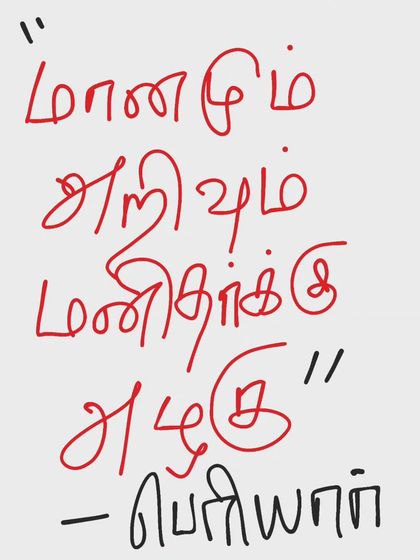 "மானமும்
அறிவும்
மனிதர்க்கு
அழகு"
- பெரியார்